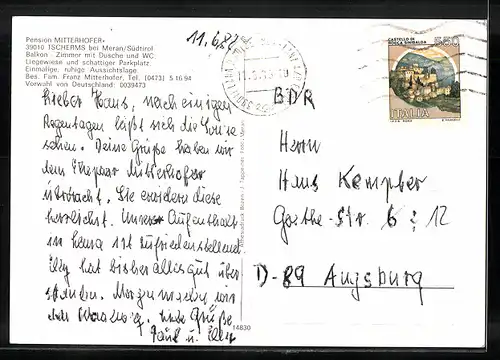 Pension MITTERHOFER
39010 TSCHERMS bei Meran/Südtirol
Balkon Zimmer mit Dusche und WC
Liegewiese und schattiger Parkplatz.
Einmalige, ruhige Aussichtslage
Bes. Fam. Franz Mitterhofer, Tel. (0473) 5 16 94
Vorwahl von Deutschland: 0039473
11.6.87
Lieber Hans, nach einigen
Regentagen läßt sich die Sonne
sehen. Deine Grüße haben wir
dem Ehepaar Mitterhofer
Sie erwidern diese
herzlichst. Unser Aufenthalt
in ist zufriedenstellend
Elly hat bisher alles gut über
standen. Morgen wir
Grüße
Paul u. Elly
14830
CASTELLO DI
ROCCA SINIBALDA
550
ITALIA
BDR
Herrn
Hans Kempter
Goethe-Str. 6 : 12
D-89 Augsburg